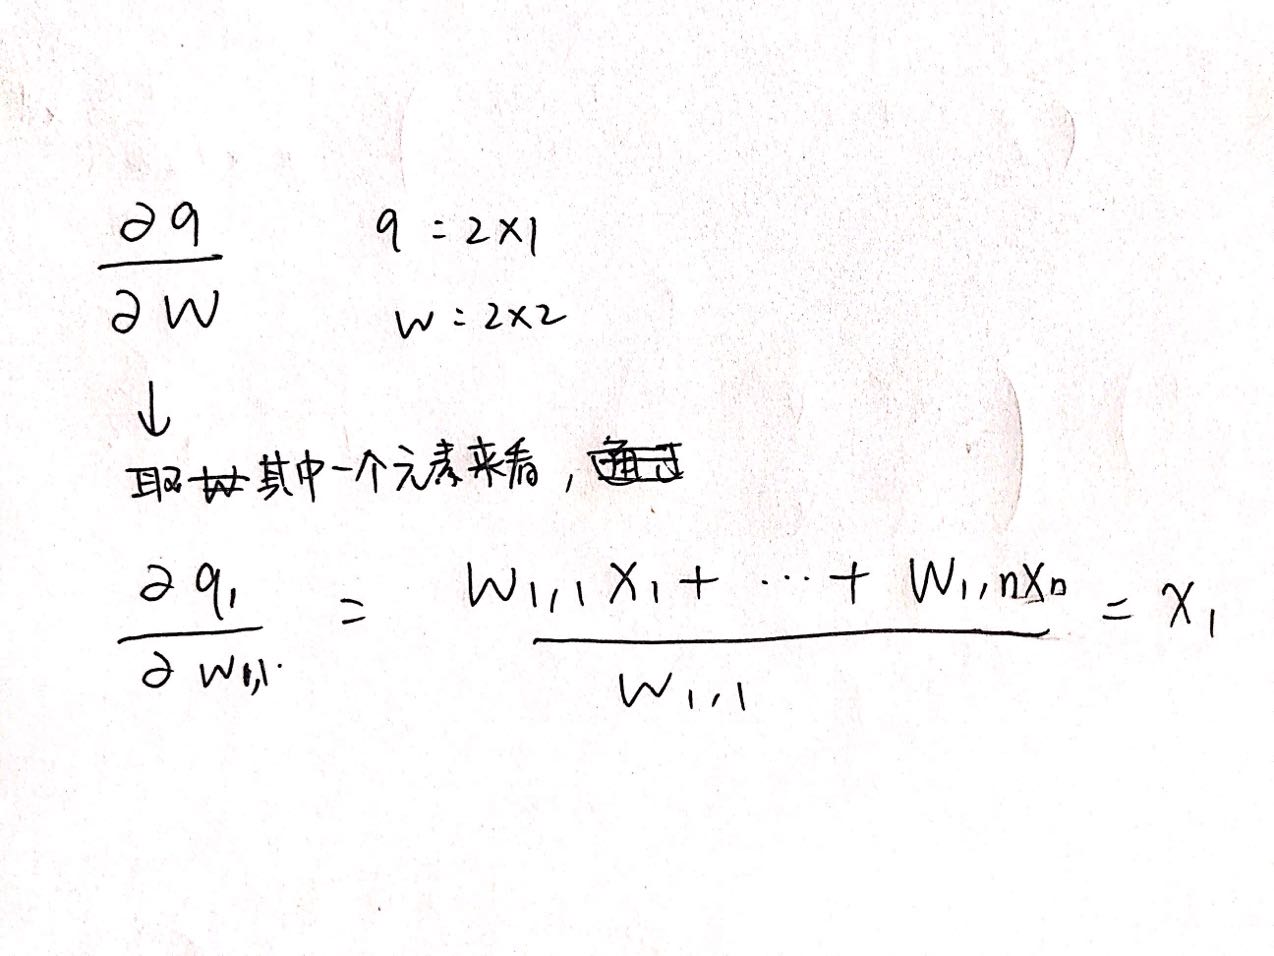 ∂q/∂W q : 2×1
W : 2×2
↓
取其中一个元素来看，
∂q₁/∂W₁,₁ = (W₁,₁X₁ + ⋯ + W₁,nXn)/W₁,₁ = X₁